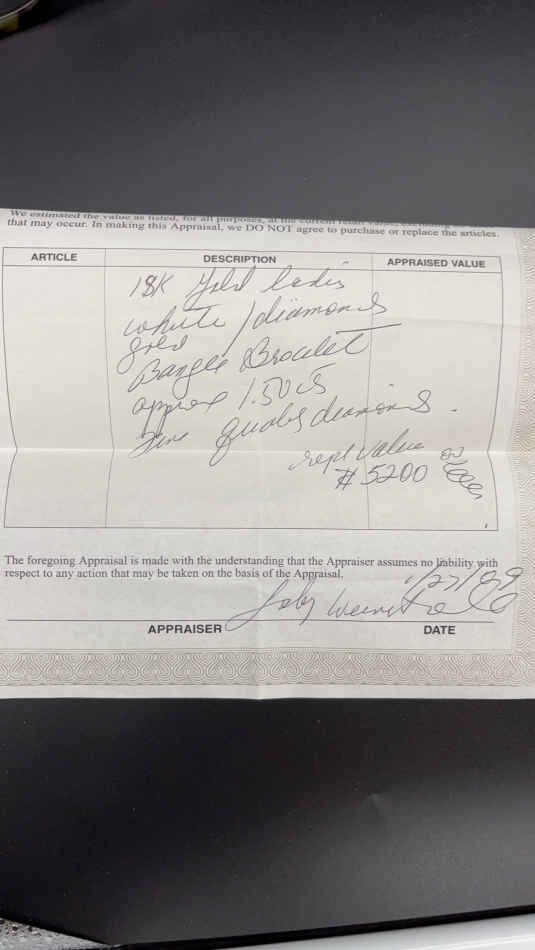 We estimated the value as listed, for all purposes, at the current retail value, excluding
that may occur. In making this Appraisal, we DO NOT agree to purchase or replace the articles.
ARTICLE DESCRIPTION APPRAISED VALUE
18K Gold Ladies
white / diamonds
gold
Bangle Bracelet
approx 1.50 cts
fine quality diamonds.
repl value
#5200
The foregoing Appraisal is made with the understanding that the Appraiser assumes no liability with
respect to any action that may be taken on the basis of the Appraisal.
1/27/99
APPRAISER DATE